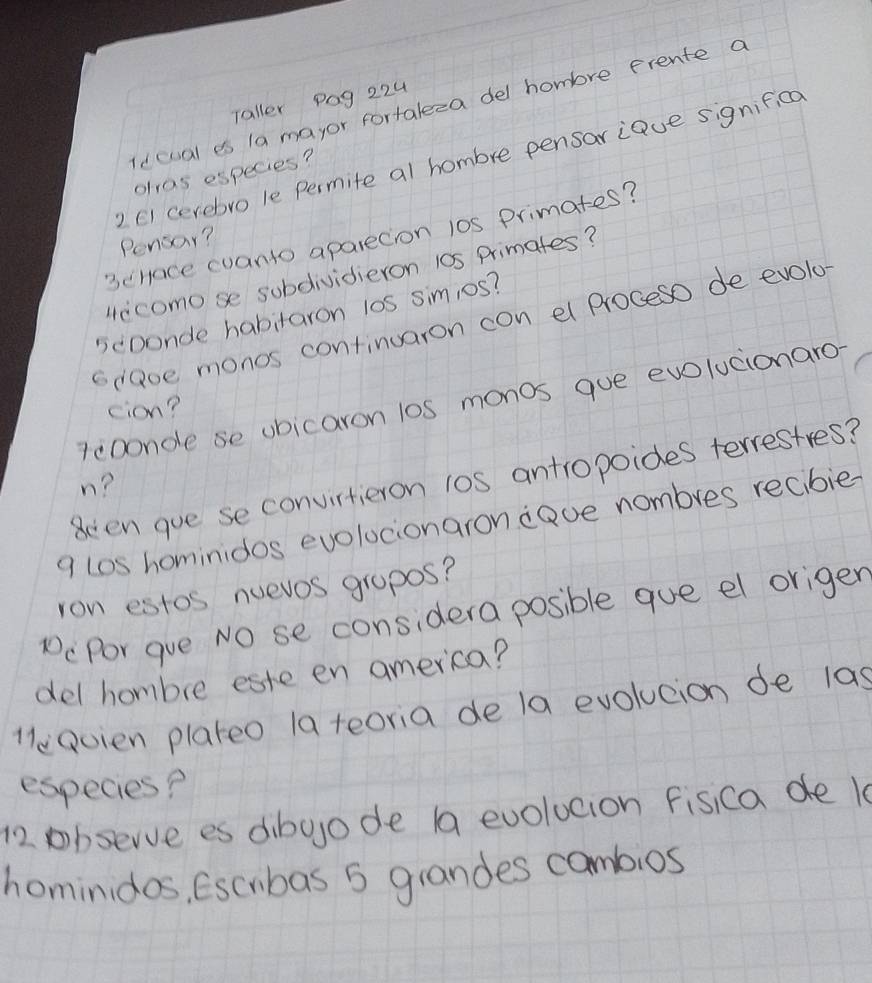 Taller Pag 224
1¿cual es la mayor fortaleza del hombre frente a
otras especies?
2 El cerebro le permite al hombre pensar ¿que significa
Pensar?
3¿Hace cuanto aparecion los primates?
4¿como se subdividieron los primates?
5¿Donde habitaron los simios?
6¿Que monos continuaron con el proceso de evolu-
cion?
7¿Donde se ubicaron los monos que evolucionaro-
n?
8¿en que se convirtieron los antropoides terrestres?
9 Los hominidos evolucionaron ¿Que nombres recibie-
ron estos nuevos grupos?
10¿Por que No se considera posible que el origen
del hombre este en america?
11¿Quien plateo la teoria de la evolucion de las
especies?
12 observe es dibujo de la evolucion fisica de l
hominidos, Escribas 5 grandes cambios